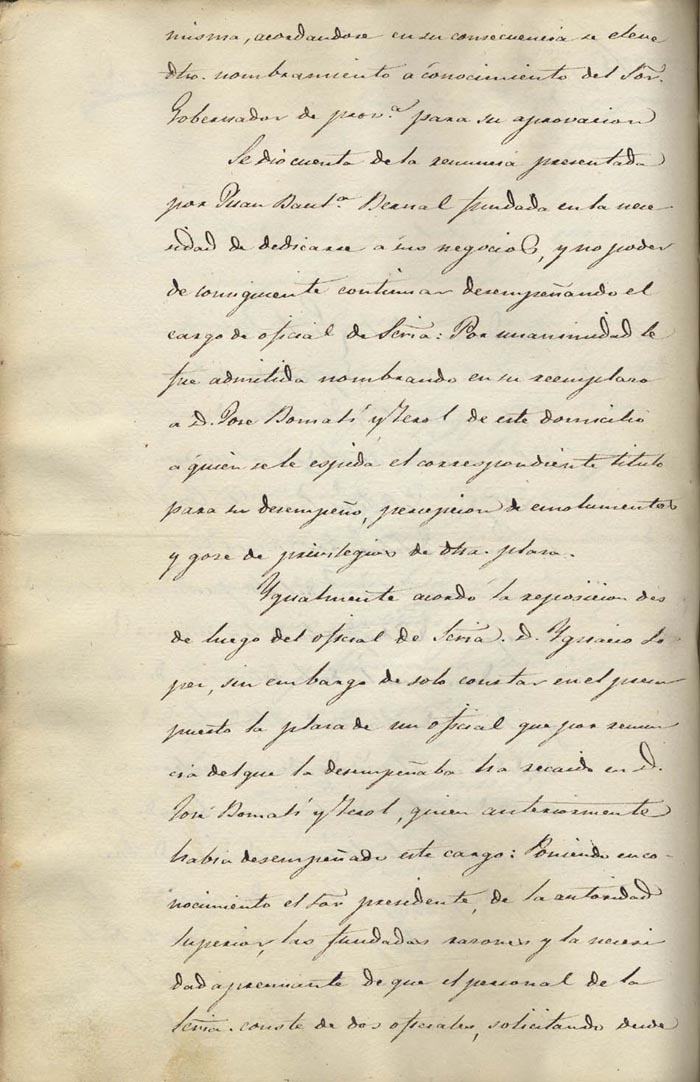 misma, acordandose en su consecuencia se eleve
dho. nombramiento a conocimiento del Sor.
Gobernador de prov.ª para su aprovacion
Se dio cuenta de la renuncia presentada
por Juan Baut.ª Bernal fundada en la nece
sidad de dedicarse a sus negocios, y no poder
de consiguiente continuar desempeñando el
cargo de oficial de Sería: Por unanimidad le
fue admitida nombrando en su reemplazo
a D. Jose Bomatí y Terol de este domicilio
a quien se le espida el correspondiente titulo
para su desempeño, percepcion de emolumentos
y gose de privilegios de dha. plaza.
Ygualmente acordó la reposicion des
de luego del oficial de Sería. D. Ygnacio Lo
pez, sin embargo de solo constar en el presu
puesto la plaza de un oficial que por renun
cia del que la desempeñaba ha recaido en D.
José Bomatí y Terol, quien anteriormente
habia desempeñado este cargo: Poniendo en co-
nocimiento el Sor presidente, de la autoridad
Superior, las fundadas razones y la necesi
dad apremiante de que el personal de la
Sería. conste de dos oficiales, solicitando desde